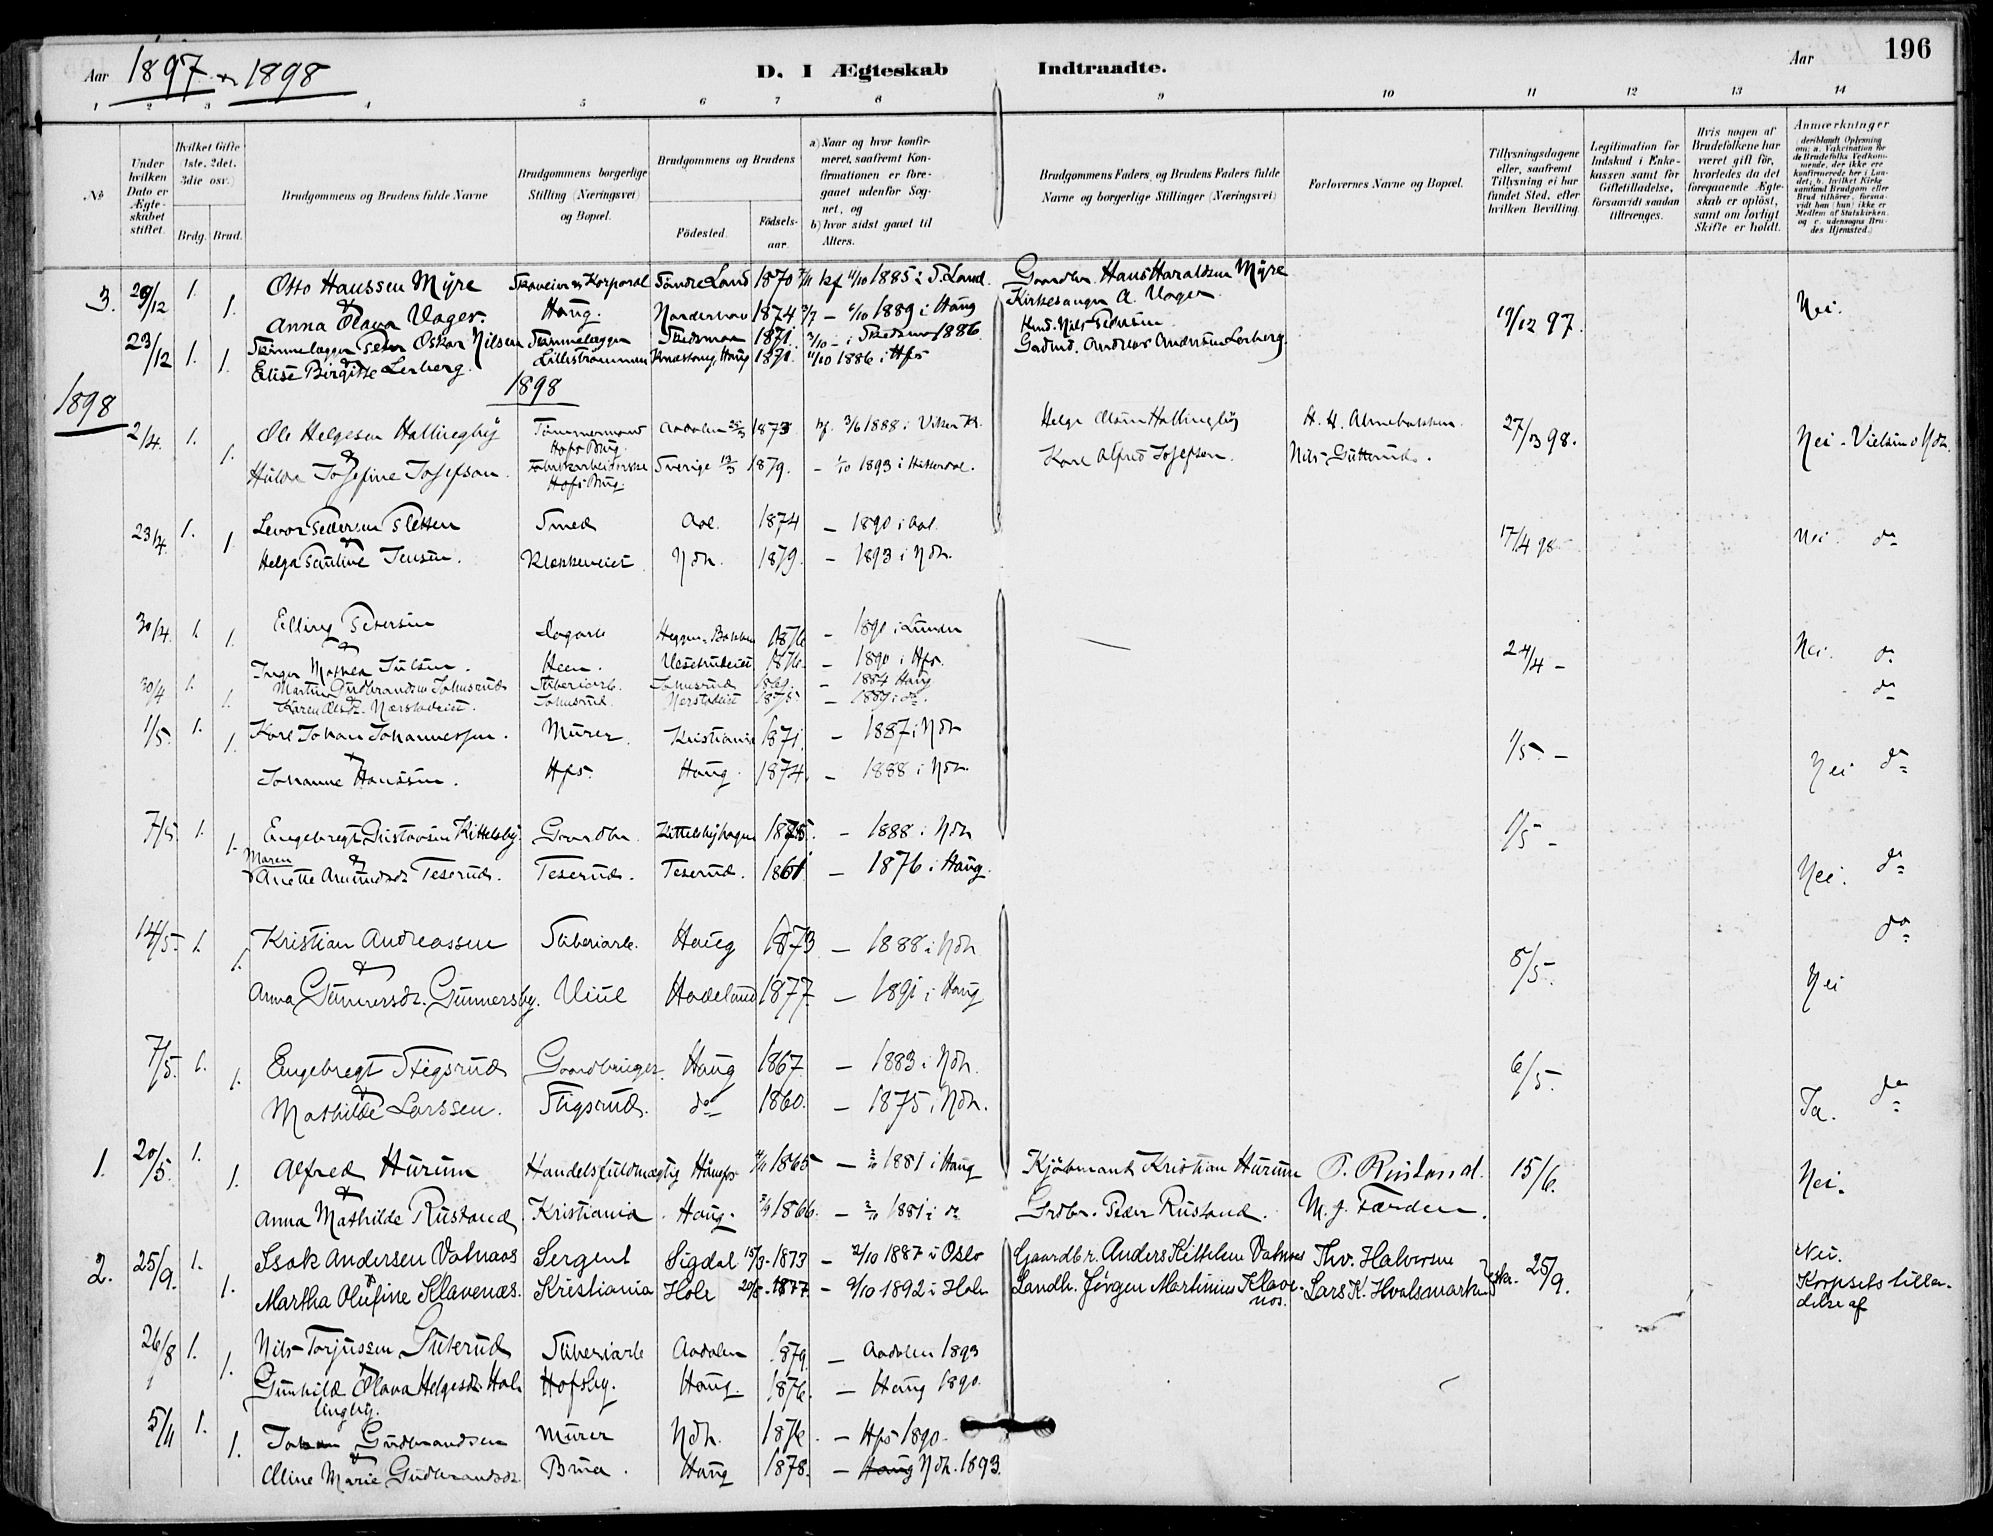 Aar 1897 & 1898
D. I Ægteskab Indtraadte.
Aar 196
1 2 3 4 5 6 7 8 9 10 11 12 13 14
No
Under hvilken Dato er Ægteskabet stiftet.
Hvilket Gifte 1ste, 2det, 3die osv.)
Brdg. Brud.
Brudgommens og Brudens fulde Navne
Brudgommens borgerlige Stilling (Næringsvei) og Bopæl.
Brudgommens og Brudens
Födested. Födselsaar.
a) Naar og hvor konfirmeret, saafremt Konfirmationen er foregaaet udenfor Sognet, og
b) hvor sidst gaaet til Alters.
Brudgommens Faders og Brudens Faders fulde Navne og borgerlige Stillinger (Næringsvei)
Forlovernes Navne og Bopæl.
Tillysningsdagene eller, saafremt Tillysning ei har fundet Sted, efter hvilken Bevilling.
Legitimation for Indskud i Enkekassen samt for Giftetilladelse, forsaavidt saadan tiltrænges.
Hvis nogen af Brudefolkene har været gift för, hvorledes da det foregaaende Ægteskab er oplöst, samt om lovligt Skifte er holdt.
Anmærkninger
(deriblandt Oplysning om: a. Vakcination for de Brudefolks Vedkommende, der ikke ere konfirmerede her i Landet; b. hvilket Kirkesamfund Brudgom eller Brud tilhörer, forsaavidt han (hun) ikke er Medlem af Statskirken, og c. udensogns Brudes Hjemsted.)
3. 29/12 1. Otto Hanssen Myre Korporal Söndre Land 1870 kf 11/10 1885 i S. Land. Hans Haraldsen Myre
1. & Anna Olava Vager. Haug. Norderhov 1874 – 6/10 1889 i Haug Kirkesanger A. Vager. 19/12 97. Nei.
23/12 1. Oskar Nilsen Skedsmo 1871. – i Skedsmo 1886. Nils Pedersen
1. & Elise Birgitte Lerberg. Lilleströmmen Haug 1870. 11/10 1886 i Hfs Andreas Andersen Lerberg
1898 1898
2/4. 1. Ole Helgesen Hallingby Tömmermand Aadalen 1873 kf. 3/6 1888 i Viker K. Helge Olsen Hallingby 27/3 98.
1. & Hulda Josefine Josefson. Hofs Brug. Sverige 1879. – 1/10 1893 i Karl Alfred Josefson. Nils Gutterud. Nei – Vielsen i Ndh.
23/4. 1. Levor Pedersen Sletten Smed Aal. 1874 – 1890 i Aal. 17/4 98 Nei. do
1. & Helga Pauline Jensen. Klækkeneiet Ndh. 1879. – 1893 i Ndh.
30/4. 1. Elling Petersen Dagarb. 1876 – 1890 i Lunder 24/4 – Nei. do
1. & Inger Mathea Julsen. Heen. 1876. – 1890 i Hfs.
30/4 1. Martin Gudbrandsen Johnsrud Sliberiarb. Johnsrud – 1884 Haug do
1. Johnsrud. 1875 – 1889 i do.
1/5. 1. Karl Johan Johannessen. Murer. Kristiania 1871. – 1887 i Ndh 1/5 –
1. & Johanne Hanssen. Hfs. Haug. 1874. – 1888 i Ndh. Nei do
7/5 1. Engebregt Gustavsen Kittelsby. Gaardbr. Kittelsbyhagen 1875. – 1888 i Ndh 1/5 –
1. Maren & Anette Amundsdt. Teserud. Teserud. Teserud. 1861 – 1876 i Haug. Nei. do
14/5. 1. Kristian Andreassen Sliberiarb. Haug 1873 – 1888 i Ndh. do
1. & Anna Gunnersdt. Gunnersby. Viul Hadeland 1877. – 1891 i Haug 8/5. Nei
7/5. 1. Engebregt Stigsrud Gaardbruger Haug 1867 – 1883 i Ndh. 6/5.
1. & Mathilde Larssen. Stigsrud. do 1860. – 1875 i Ndh. Ja. do
1. 20/5. 1. Alfred Hurum Handelsfuldmægtig Hönefos 1865 – 1881 i Haug Kjöbmand Kristian Hurum P. Rustand. 15/6. Nei.
1. & Anna Mathilde Rustand. Kristiania. Haug. 1866. – 1881 i do Grdbr. Peder Rustand. M. J. Færden.
2. 25/9. 1. Isak Andersen Vatnaas Sergent Sigdal 15/3 1873 – 2/10 1887 i Oslo Gaardbr. Anders Kittelsen Vatnaas Thv. Halvorsen 25/9. Nei.
1. & Martha Olufine Klavenæs. Kristiania Hole 20/5 1877. – 9/10 1892 i Hole Landh. Jörgen Martinius Klavenæs. Lars K. Hvalsmarken Korpsets tilladelse af
26/8 1. Nils Torjussen Sliberiarb Aadalen 1879. – Aadalen 1893
1. & Gunhild Olava Helgesdt. Hallingby. Hofsby. Haug. 1876. – Haug 1890.
5/11 1. Johan Gudbrandsen Murer Ndh. 1876. – Hfs 1890.
1. & Oline Marie Gudbrandsdt. Haug 1878. – Haug Ndh. 1893.